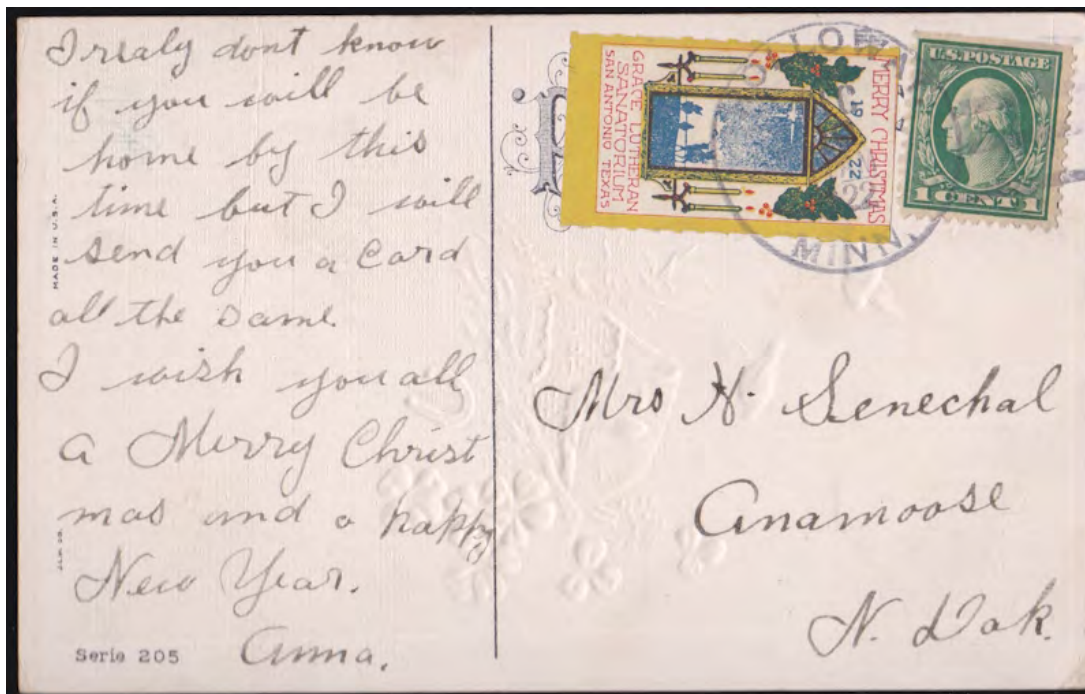 I realy dont know
if you will be
home by this
time but I will
send you a Card
all the same.
I wish you all
a Merry Christ
mas and a happy
New Year.
Anna.
MADE IN U.S.A.
Serie 205
GRACE LUTHERAN
SANATORIUM
SAN ANTONIO TEXAS
MERRY CHRISTMAS
19 22
U.S. POSTAGE
1 CENT 1
22
MINN.
Mrs N. Senechal
Anamoose
N. Dak.